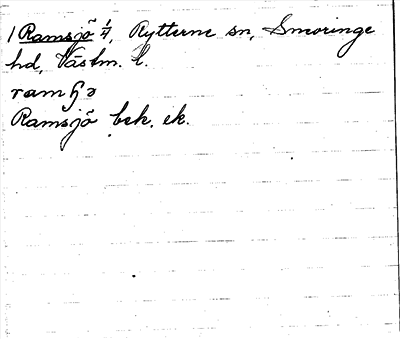 1 Ramsjö 1/4, Rytterne sn, Snevringe
hd, Västm. l.
ramʃə
Ramsjö bek. ek.